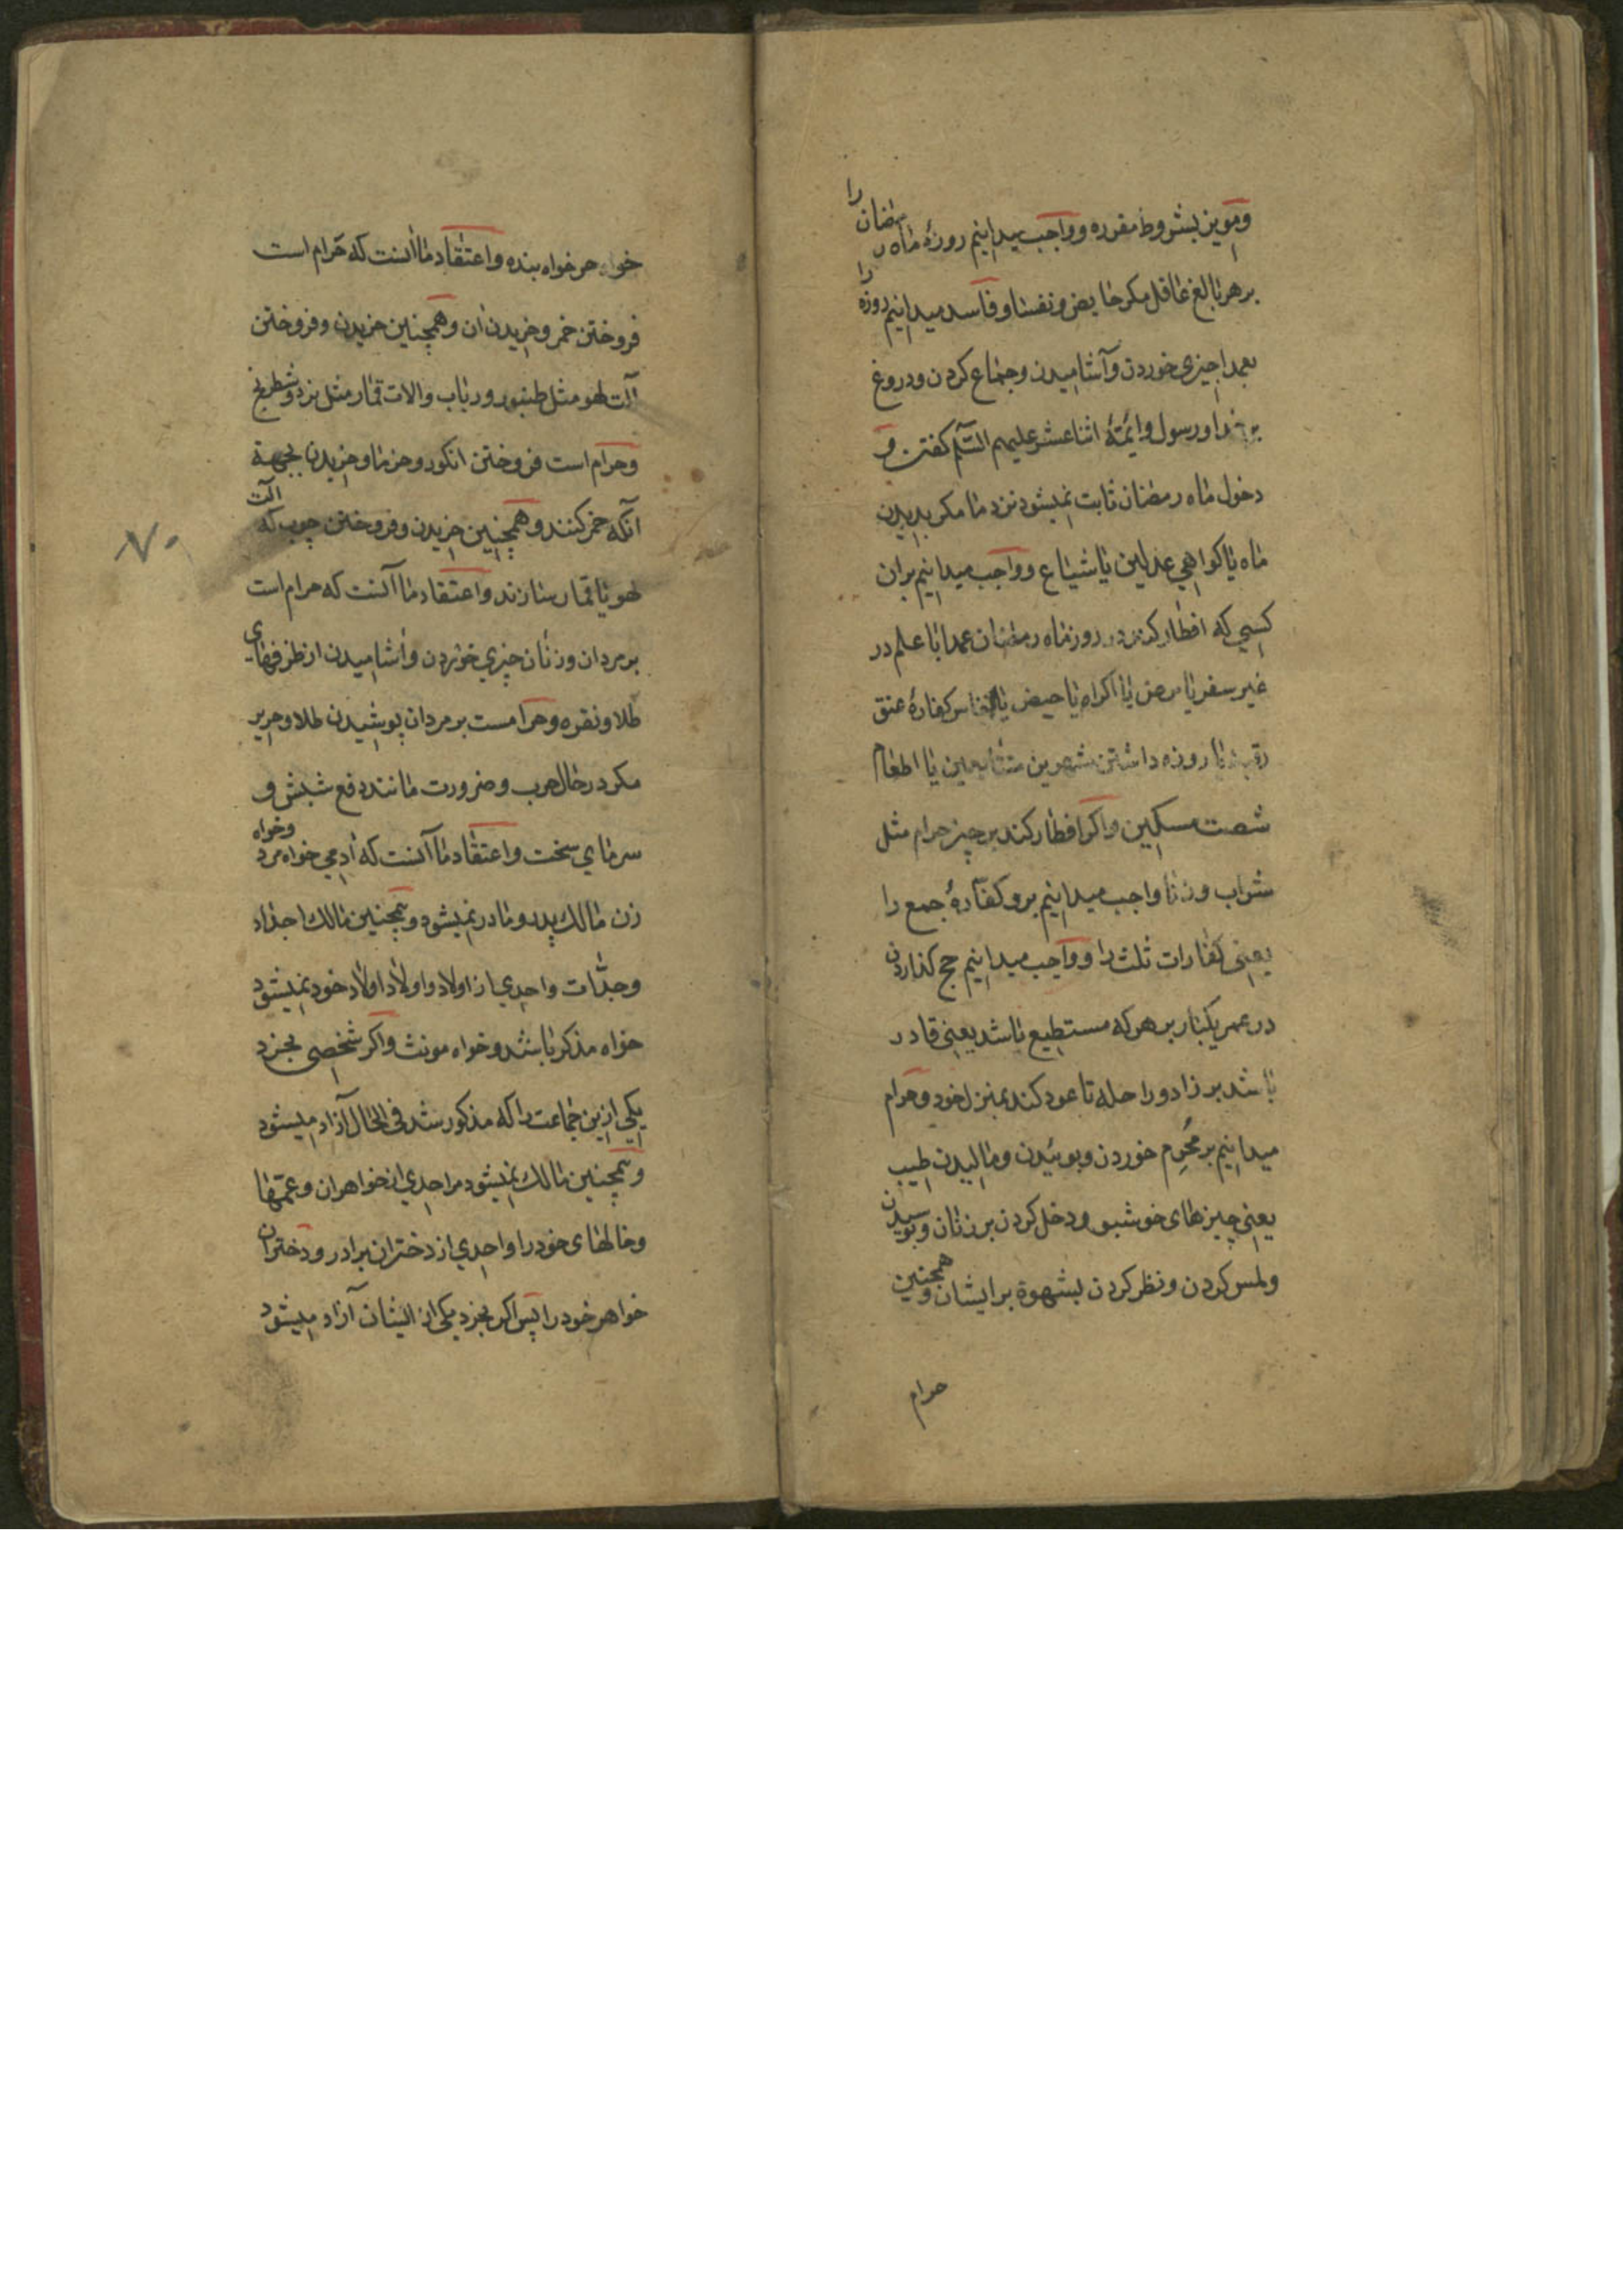 ومویز بشروط مقرره وواجب میدانیم روزهٔ ماه رمضان را
بر هر بالغ عاقل مکر حایض ونفسا وفاسد میدانیم روزه را
بعمدا چیزی خوردن وآشامیدن وجماع کردن ودروغ
بر خدا ورسول وائمّهٔ اثناعشر علیهم السّلم کفتن و
دخول ماه رمضان ثابت نمیشود نزد ما مکر بدیدن
ماه یا کواهي عدلین یا شیاع وواجب میدانیم بران
کسي که افطار کند در روز ماه رمضان عمدا با علم در
غیر سفر یا مرض یا اکراه یا حیض یا نفاس کفارهٔ عتق
رقبه یا روزه داشتن شهرین متتابعین یا اطعام
شصت مسکین واکر افطار کند بر چیز حرام مثل
شراب وزنا واجب میدانیم برو کفّارهٔ جمع را
یعنی کفارات ثلث را وواجب میدانیم حج کذاردن
در عمر یکبار بر هر که مستطیع باشد یعنی قادر
باشد بر زاد وراحله تا عود کند بمنزل خود وحرام
میدانیم بر مُحْرِم خوردن وبوئیدن ومالیدن طیب
یعنی چیزهای خوشبو ودخل کردن بر زنان وبوسیدن
ولمس کردن ونظر کردن بشهوة بر ایشان وهمچنین
حرام
خواه حر خواه بنده واعتقاد ما آنست که حرام است
فروختن خمر وخریدن ان وهمچنین خریدن وفروختن
آلت لهو مثل طنبور ورباب والات قمار مثل نرد وشطرنج
وحرام است فروختن انکور وخرما وخریدن بجهة
انکه خمر کنند وهمچنین خریدن وفروختن چوب که الت
لهو یا قمار سازند واعتقاد ما آنست که حرام است
بر مردان وزنان چیزي خوردن وآشامیدن از ظرفهای
طلا ونقره وحرامست بر مردان پوشیدن طلا وحریر
مکر در حال حرب وضرورت مانند دفع شبش و
سرماي سخت واعتقاد ما آنست که آدمي خواه مرد وخواه
زن مالك پدر ومادر نمیشود وهمچنین مالك اجداد
وجدّات واحدي از اولاد واولاد اولاد خود نمیشود
خواه مذکر باشد وخواه مونث واکر شخصی بخرد
یکي ازین جماعت را که مذکور شد فی الحال آزاد میشود
وهمچنین مالك نمیشود مرد احدي از خواهران وعمّها
وخالهای خود را واحدي از دختران برادر ودختران
خواهر خود را پس اکر بخرد یکي از ایشان آزاد میشود
۷۰